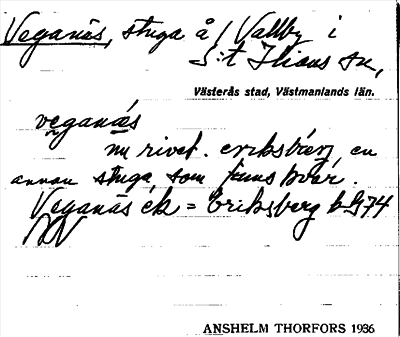 Veganäs, stuga å / Vallby i
S:t Ilians sn,
Västerås stad, Västmanlands län.
veganäs
nu rivet. eriksbärj, en
annan stuga som finns kvar.
Veganäs ek = Eriksberg bg 74
ANSHELM THORFORS 1936